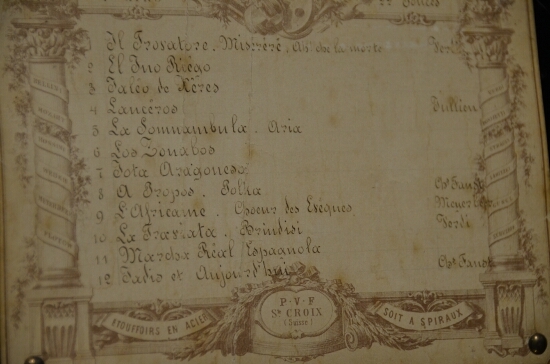 1 Il Trovatore. Miserere, Ah! che la morte Verdi
2 El Ino Riégo
3 Jaléo de Xéres
4 Lancéros Jullien
5 La Somnambula. Aria
6 Los Zouabos
7 Jota Aragonesa
8 A Propos. Polka Ch. Faust
9 L'Africaine. Choeur des Evêques Meyerbeer
10 La Traviata. Brindisi Verdi
11 Marcha Réal Espagnola
12 Jadis et Aujourd'hui Ch. Faust
P·V·F
STE CROIX
(Suisse)
ETOUFFOIRS EN ACIER
SOIT A SPIRAUX